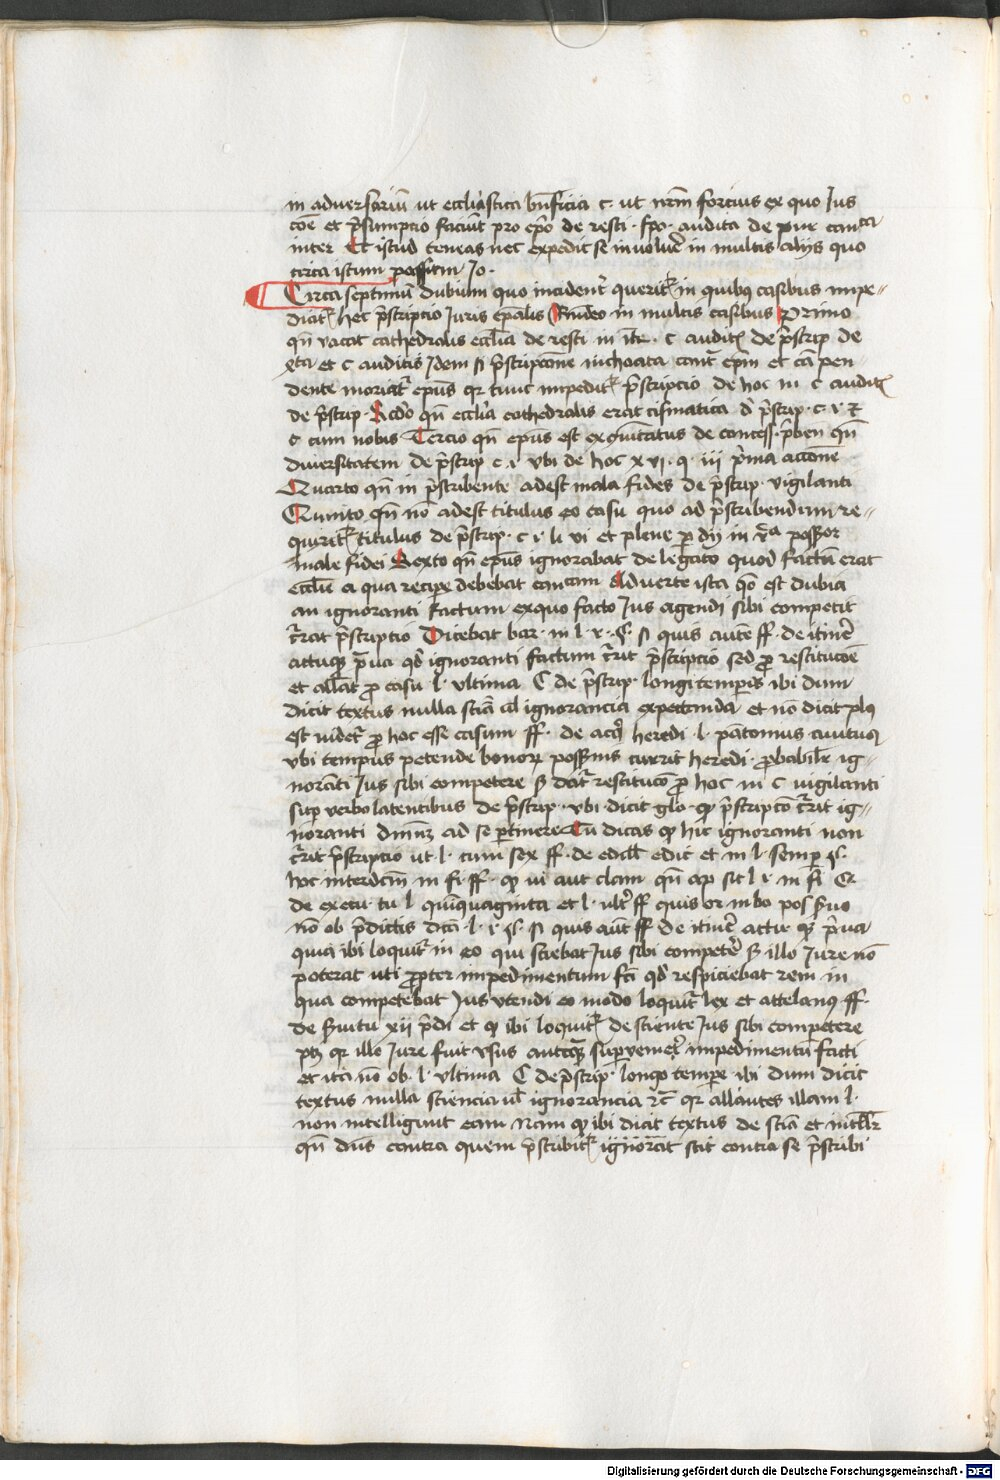 in adversariū ut ecclīastica bn̄ficia c. ut nr̄m forcius ex quo Jus
cōe et p̄sumptio faciūt pro ep̄o de resti. spo. audita de pur can^ca
inter Et istud teneas nec expedit se involuē in multis alijs quo
circa istum passum Jo.
Circa septimū dubium quo incident̄ querit̄ in quibꝫ casibus impe-
dicit̄ hec p̄scriptio Juris ep̄calis Rn̄deo in multis casibus Primo
qn̄ vacat cathedralis ecclīa de resti in īte. c auditꝭ de p̄scrip de
et c auditis Jdem si p̄scripcōne inchoata cont̄ ep̄m et cā pen-
dente moriat̄ ep̄us qr tunc impedit̄ p̄scripcio de hoc in c auditꝭ
de p̄scrip. Scdo qn̄ ecclīa cathedralis erat cismatica d p̄scrip. c. i et
c cum nobis Tercio qn̄ ep̄us est de concess. p̄ben qn̄
diversitatem de p̄scrip c. i ubi de hoc xvi. q. iii p̄ma accōne
Quarto qn̄ in p̄scribente adest mala fides de p̄scrip. vigilanti
Quinto qn̄ nō adest titulus eo casu quo ad p̄scribendum re-
quirit̄ titulus de p̄scrip. c. i. li vi et plene p dy in r̄a possor
male fidei Sexto qn̄ ep̄us ignorabat de legato quod factū erat
ecclīe a qua recipe debebat can̄cam Adverte ista qō est dubia
an ignoranti factum exquo facto Jus agendi sibi competit
c̄rat p̄scriptio Dicebat bar. in l. i. §. si quis autē ff. de itinē
actuqꝫ p̄ua qd ignoranti factum c̄rit p̄scriptio sed ꝓ restitucōe
et allat ꝓ casu l. ultima C de p̄scrip. longi temporis ibi dum
dicit textus nulla scīa ul ignorancia expectanda et nō dicit plus
est uidet̄ ꝓ hoc esse casum ff. de acq̄ heredi l. pātomius
ubi tempus petende bonorꝫ possessionis currit heredi. probabilr̄ ig-
norāti Jus sibi competere sꝫ dat̄ restitucō ꝓ hoc in c vigilanti
sup verbo latentibus de p̄scrip. ubi dicit glo. qꝫ p̄scripcō c̄rit ig-
noranti dmm̄ ad se p̄tinere Tu dicas qꝫ hic ignoranti non
c̄rit p̄scriptio ut l. cum sex ff. de edill edic et in l. semper §.
hoc interdcm̄ in fi. ff. qꝫ vi aut clam qn̄ ap sit l. i. in fi C
de execu. tu l quīquaginta et l. ult̄ ff quis or in bo pos
nō ob p̄dictis dicā. l. i. §. si quis aūt ff de itinē actu qꝫ p̄ua
quia ibi loquit̄ in eo qui sciebat Jus sibi competē sꝫ illo Jure nō
poterat uti ꝓpter impedimentum fcī qd respiciebat rem in
qua competebat Jus utendi eo modo loquit̄ lex et attelanus ff.
de s̄uitu. xii p̄di et qꝫ ibi loquit̄ de sciente Jus sibi competere
ptꝫ qr illo Jure fuit usus antequā supueniet̄ impedimentū facti
et ita nō ob. l. ultima C de p̄scrip. longo tempore ibi dum dicit
textus nulla sciencia ul ignorancia rc̄ qr allantes illam l.
non intelligunt eam Nam qꝫ ibi dicit textus de scīa et
qn̄ dn̄s contra quem p̄scribit̄ ignorat scit contra se p̄scribi
Digitalisierung gefördert durch die Deutsche Forschungsgemeinschaft - DFG